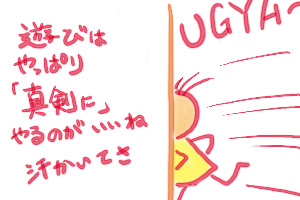 遊びは
やっぱり
「真剣に」
やるのがいいね
汗かいてさ
UGYA〜